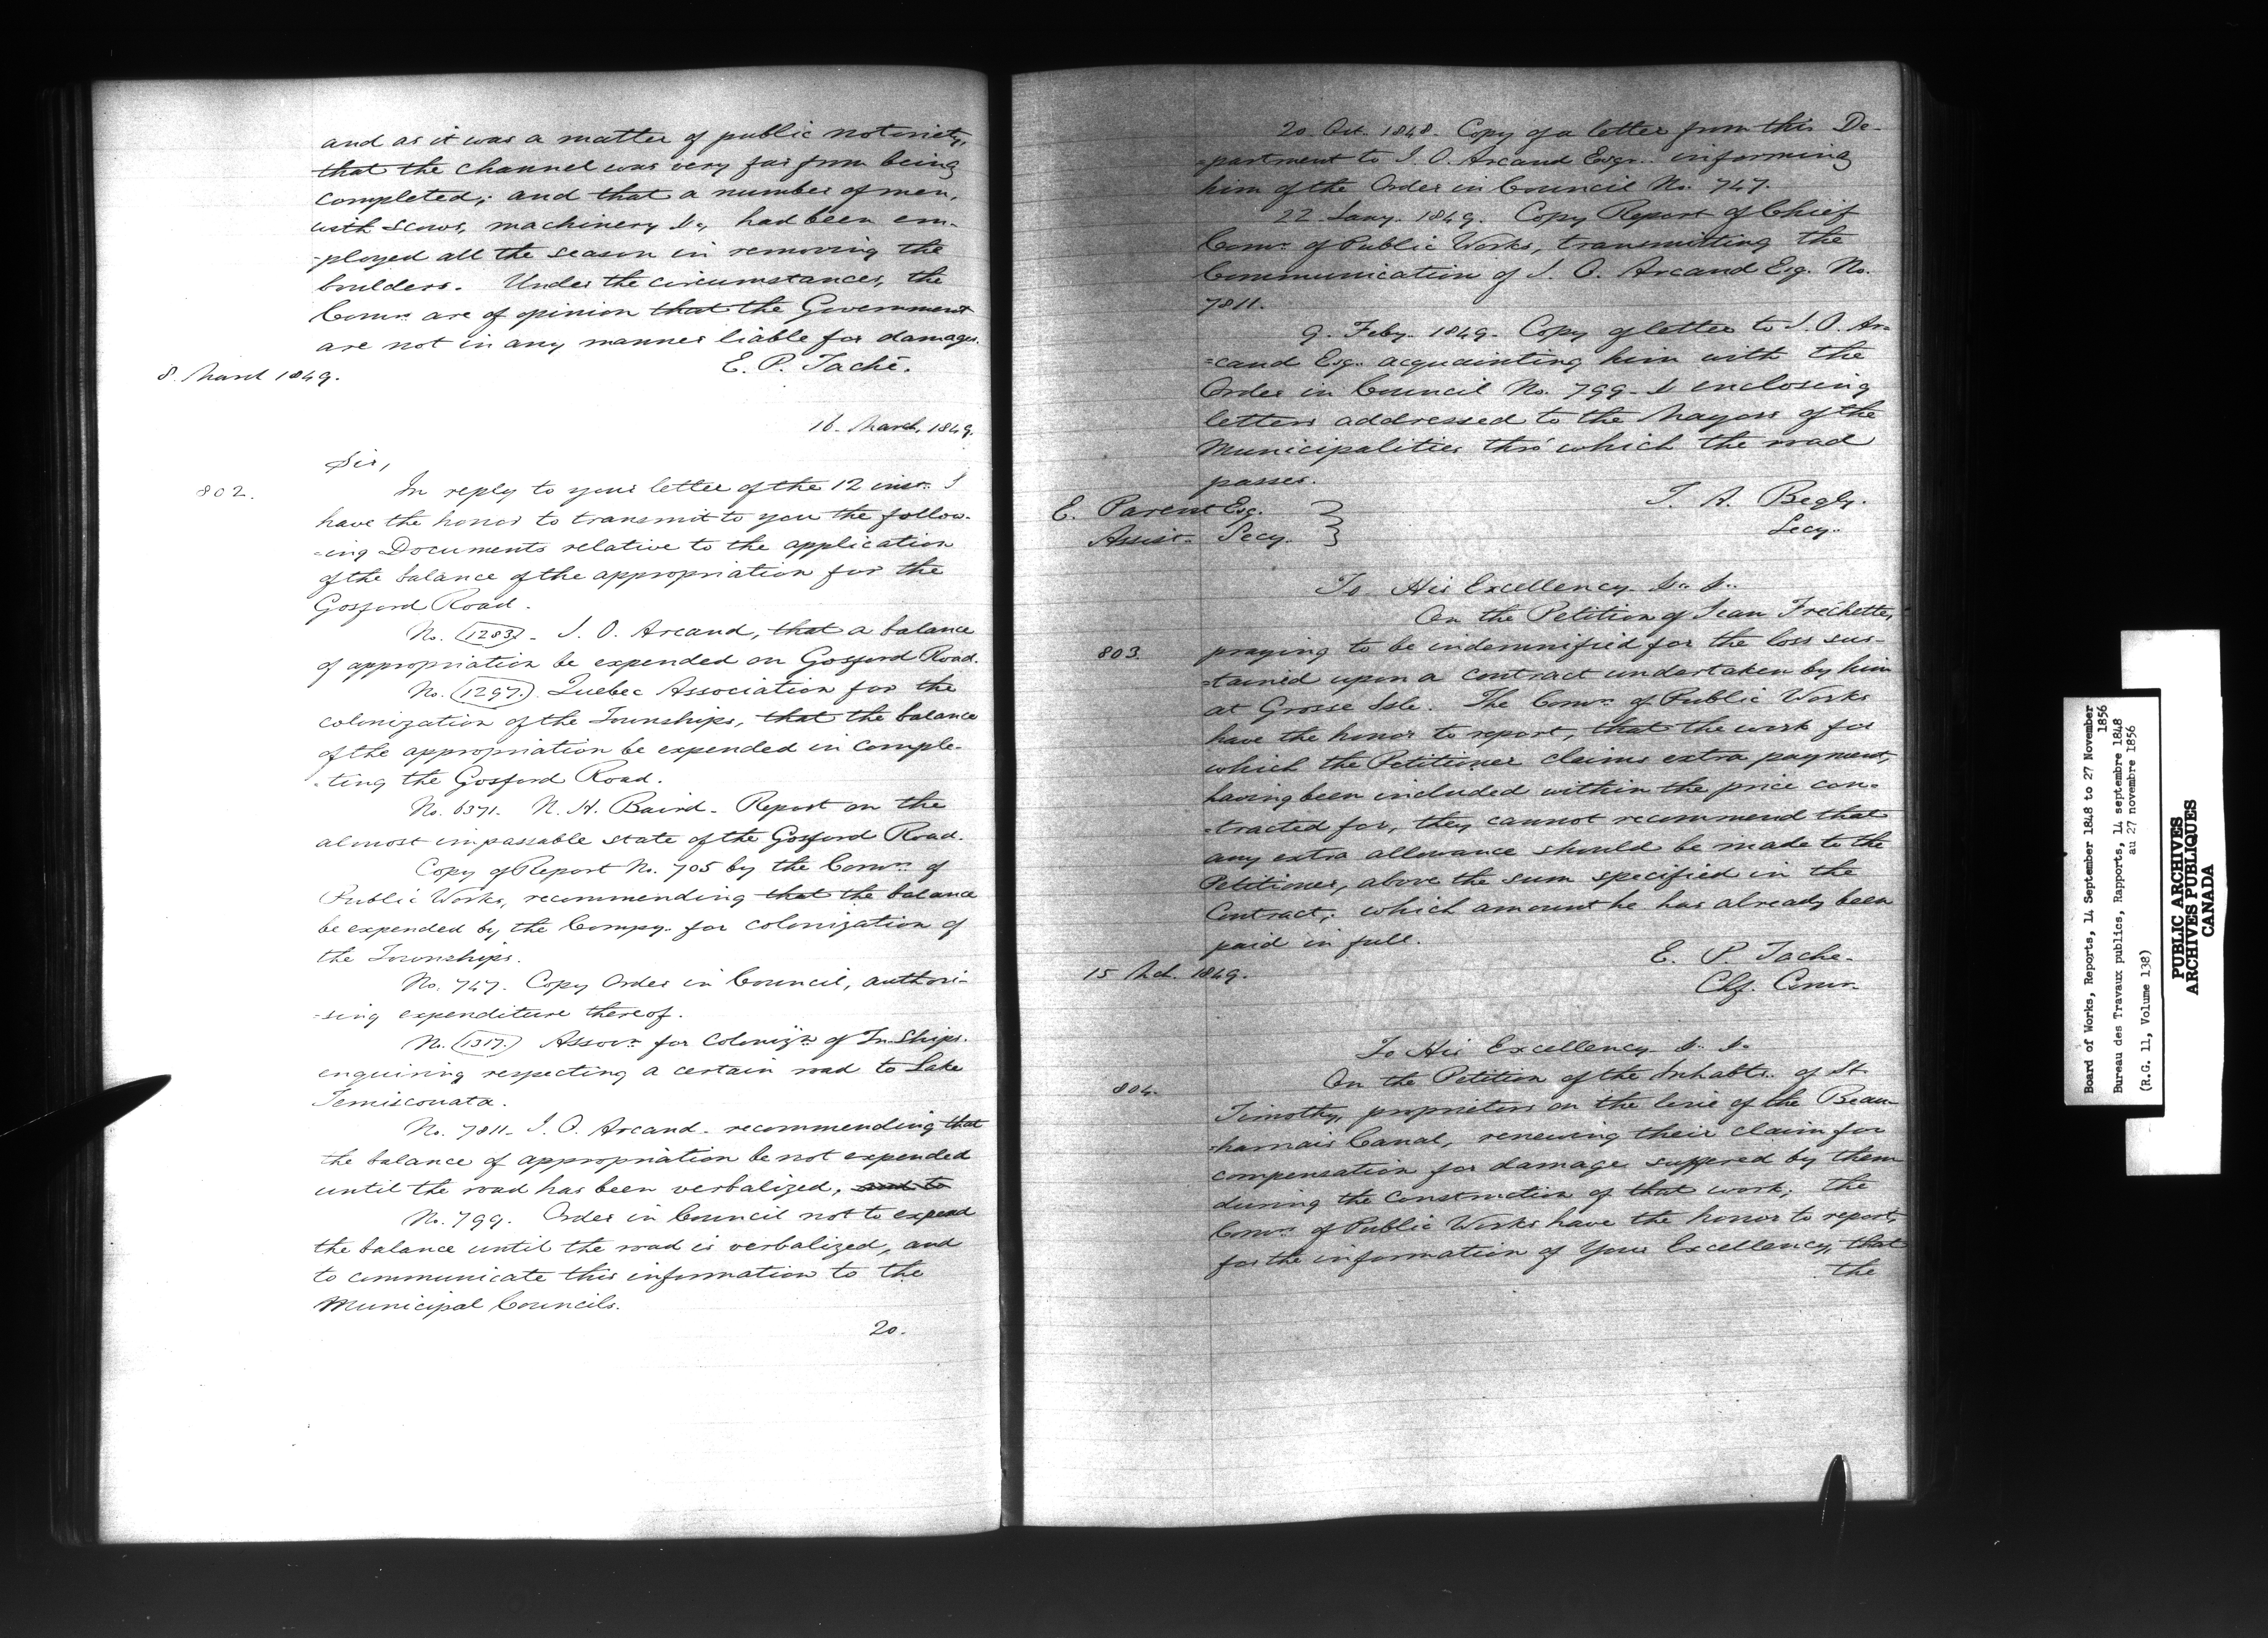 and as it was a matter of public notoriety,
that the channel was very far from being
completed; and that a number of men,
with scows, machinery &c, had been em-
-ployed all the season in removing the
boulders. Under the circumstances, the
Comrs. are of opinion that the Government
are not in any manner liable for damages.
E. P. Taché.
8. March 1849.
16. March, 1849.
Sir,
802.
In reply to your letter of the 12 inst. I
have the honor to transmit to you the follow-
-ing Documents relative to the application
of the balance of the appropriation for the
Gosford Road.
No. 1283. - J. O. Arcand, that a balance
of appropriation be expended on Gosford Road.
No. 1297. Quebec Association for the
colonization of the Townships, that the balance
of the appropriation be expended in comple-
-ting the Gosford Road.
No. 6371. N. H. Baird - Report on the
almost impassable state of the Gosford Road.
Copy of Report No. 705 by the Comrs. of
Public Works, recommending that the balance
be expended by the Compy. for colonization of
the Townships.
No. 747. Copy Order in Council, authori-
-sing expenditure thereof.
No. 1317. Assocn. for Colonizn. of Tn.Ships.
enquiring respecting a certain road to Lake
Temisconata.
No. 7811 - J. O. Arcand - recommending that
the balance of appropriation be not expended
until the road has been verbalized, and to
No. 799. Order in Council not to expend
the balance until the road is verbalized, and
to communicate this information to the
Municipal Councils.
20.
20. Oct. 1848. Copy of a letter from this De-
-partment to J. O. Arcand Esqr. informing
him of the Order in Council No. 747.
22 Jany. 1849. Copy Report of Chief
Comr. of Public Works, transmitting the
Communication of J. O. Arcand Esq. No.
7811.
9. Feby. 1849. Copy of letter to J. O. Ar-
=cand Esq. acquainting him with the
Order in Council No. 799 - & enclosing
letters addressed to the Mayors of the
Municipalities thro' which the road
passes.
T. A. Begly.
Secy.
E. Parent Esq.
Assist. Secy.
To His Excellency &c. &c.
On the Petition of Jean Fréchette,
803.
praying to be indemnified for the loss sus-
-tained upon a contract undertaken by him
at Grosse Isle. The Comrs. of Public Works
have the honor to report, that the work for
which the Petitioner claims extra payment,
having been included within the price con-
-tracted for, they cannot recommend that
any extra allowance should be made to the
Petitioner, above the sum specified in the
Contract; which amount he has already been
paid in full.
E. P. Tache.
Chf. Comr.
15 Mch. 1849.
To His Excellency &c. &c.
804.
On the Petition of the Inhabts. of St.
Timothy, proprietors on the line of the Beau-
-harnais Canal, renewing their claim for
compensation for damage suffered by them
during the construction of that work; the
Comrs. of Public Works have the honor to report,
for the information of Your Excellency, that
the
Board of Works, Reports, 14 September 1848 to 27 November
1856
Bureau des Travaux publics, Rapports, 14 septembre 1848
au 27 novembre 1856
(R.G. 11, Volume 138)
PUBLIC ARCHIVES
ARCHIVES PUBLIQUES
CANADA